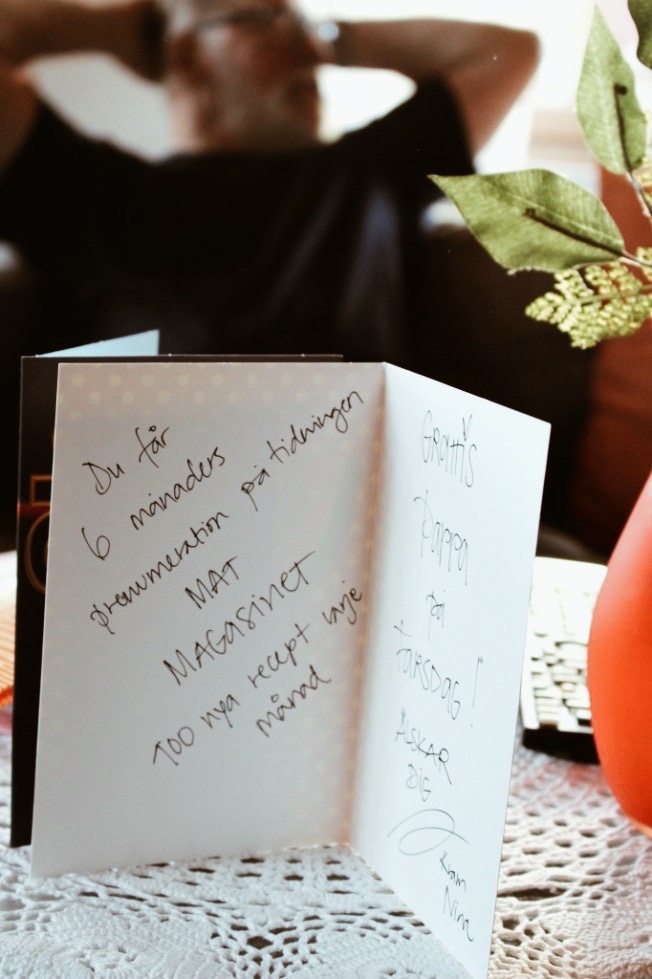 Du får
6 månaders
prenumeration på tidningen
MAT
MAGASINET
100 nya recept varje
månad
GRATTIS
Pappa
på
FARSDAG!
ÄLSKAR
DIG
Kram
Nina